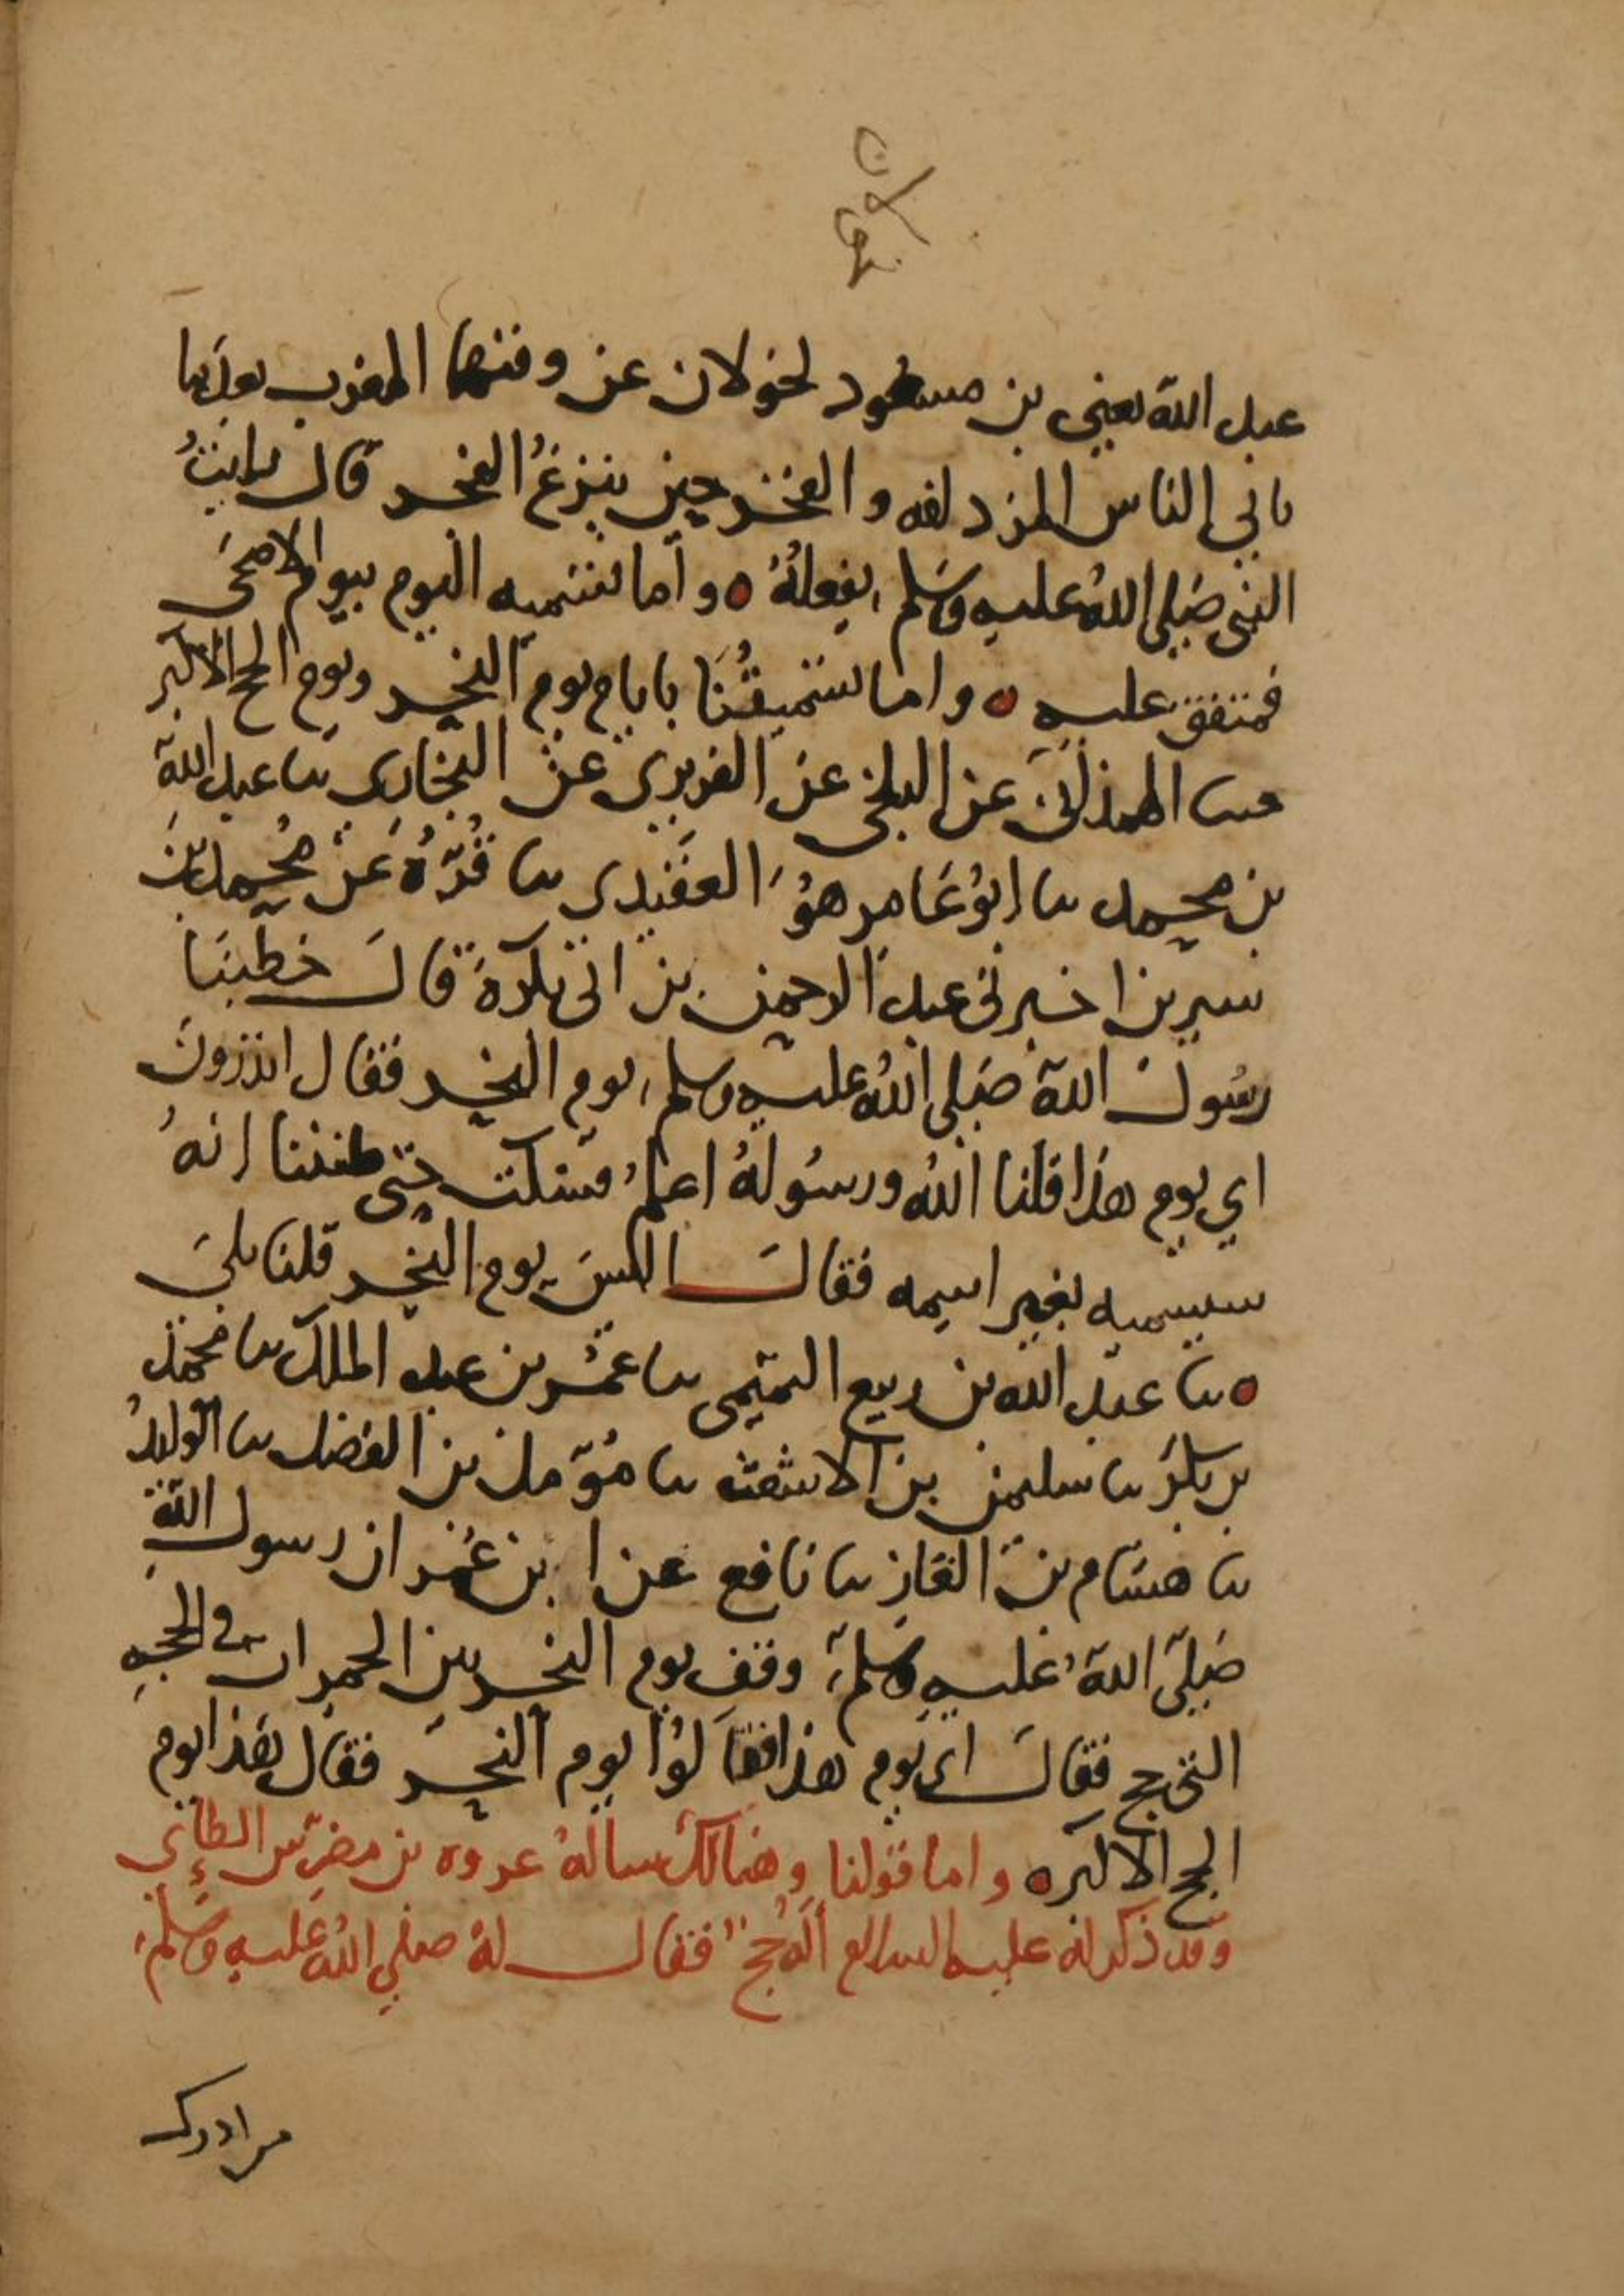 عبد الله يعني بن مسعود تحولان عن وقتهما المغرب بعدما
ياتي الناس المزدلفه والفجر حين يبزغ الفجر قال رايتُ
النبي صَلى اللهُ عليهِ وسَلم يفعلُهُ ٥ وأما تسميه اليوم بيوم الاضحَى
فمتفق عليه ٥ واما تسميتُنَا اياه يوم النحر ويوم الحج الاكبر
فحدثنا الهمذاني عن البلخي عن الفربري عن البخاري ثنا عبد الله
بن محمد ثنا ابُو عَامر هوُ العقدي ثنا قُرَّةُ عَن مُحمد بن
سيرين اخبرني عبد الرحمن بن ابي بكرة قالَ خطبنَا
رسُول الله صَلى اللهُ عليه وسلم يوم النحر فقال اتدرونَ
اي يوم هذا قلنا اللهُ ورسُولهُ اعلمُ فسكت حتى ظننا انهُ
سيسميه بغير اسمه فقالَ اليسَ يوم النحر قلنا بلىَ
٥ ثنا عبد الله بن ربيع التميمي ثنا عمُر بن عبد الملك ثنا محمد
بن بكر ثنا سليمن بن الاشعث ثنا مُؤمل بن الفضل ثنا الوليدُ
ثنا هشام بن الغاز ثنا نافع عن ابن عُمر ان رسول اللهِ
صَلَى اللهُ عليهِ وسَلم وقف يوم النحر بين الجمرات في الحجهِ
التي حج فقالَ اي يوم هذا فقالوُا يوم النحر فقال هَذا يوم
الحج الاكبر ٥ واما قولنا وهنالك سالهُ عروه بن مضرّس الطائي
وقد ذكر له عليه السلام ألَهُ حجٌ فقال لهُ صلى اللهُ عليهِ وسَلم
من ادرك